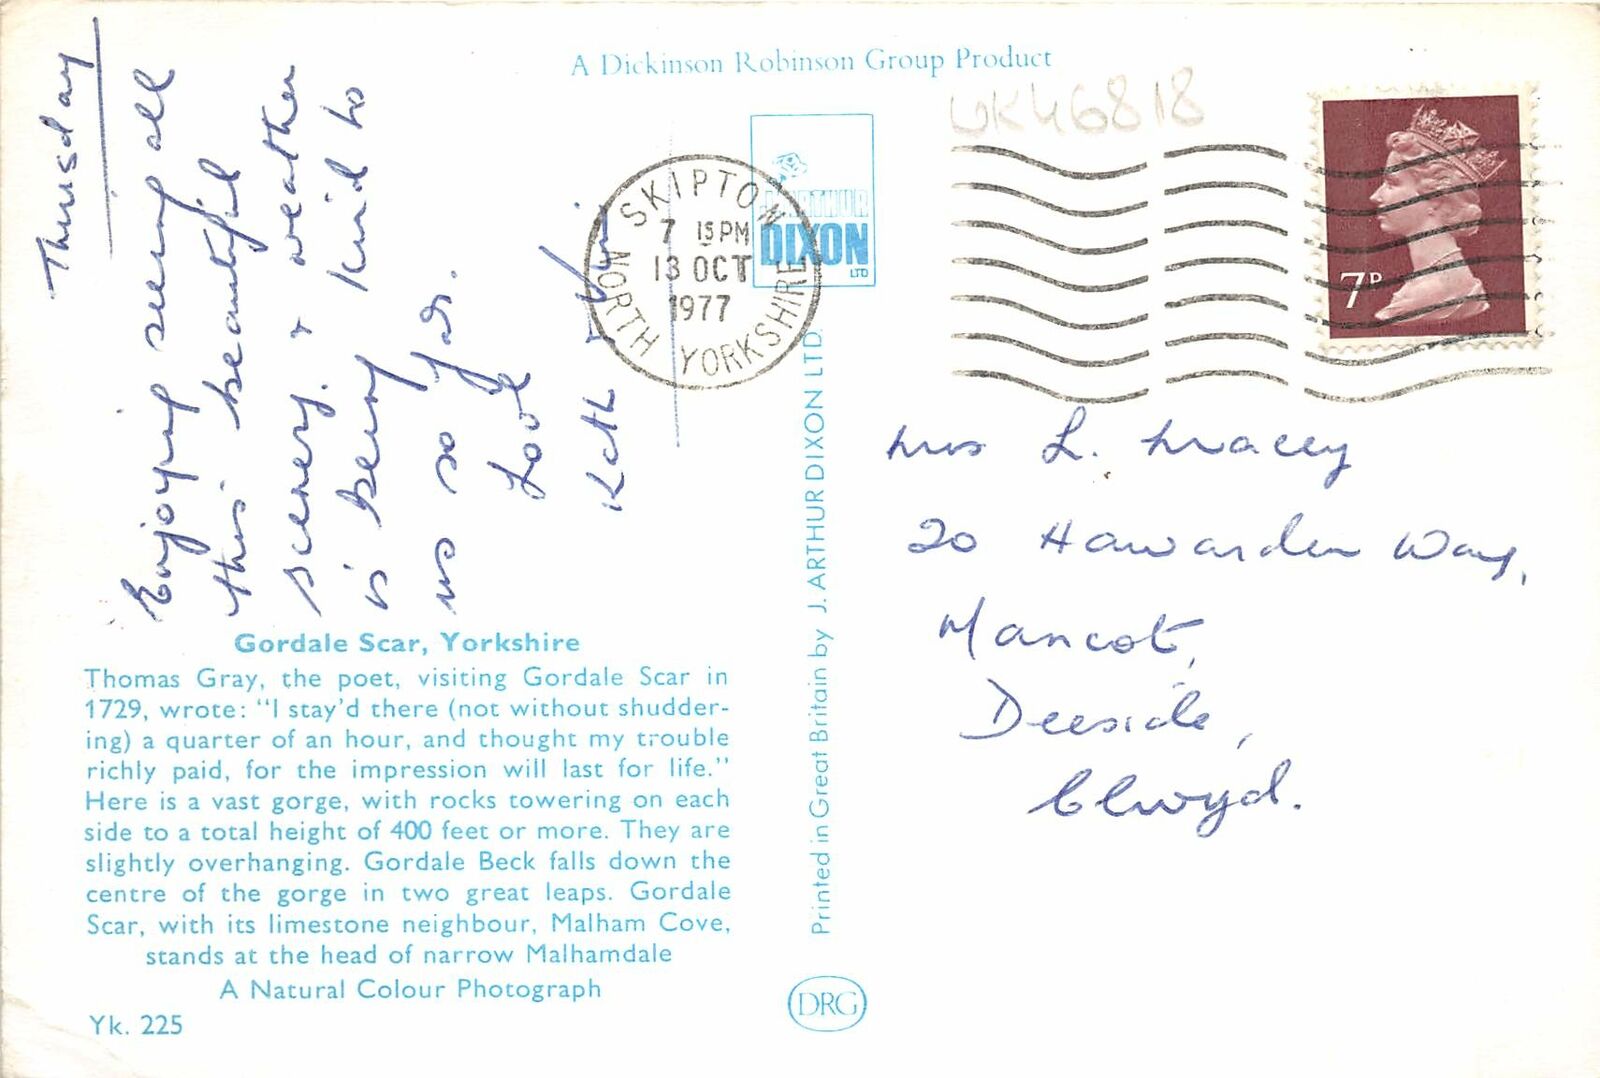 A Dickinson Robinson Group Product
UK46818
Thursday
Enjoying seeing all
this beautiful
scenery. & weather
is being kind to
us so far.
Love
Kath &
J. ARTHUR
DIXON
LTD
SKIPTON
7 15 PM
13 OCT
1977
NORTH YORKSHIRE
7P
Mrs L. Mracey
20 Hawarden Way,
Mancot,
Deeside,
Clwyd.
Gordale Scar, Yorkshire
Thomas Gray, the poet, visiting Gordale Scar in
1729, wrote: "I stay'd there (not without shudder-
ing) a quarter of an hour, and thought my trouble
richly paid, for the impression will last for life."
Here is a vast gorge, with rocks towering on each
side to a total height of 400 feet or more. They are
slightly overhanging. Gordale Beck falls down the
centre of the gorge in two great leaps. Gordale
Scar, with its limestone neighbour, Malham Cove,
stands at the head of narrow Malhamdale
A Natural Colour Photograph
Yk. 225
Printed in Great Britain by J. ARTHUR DIXON LTD.
DRG